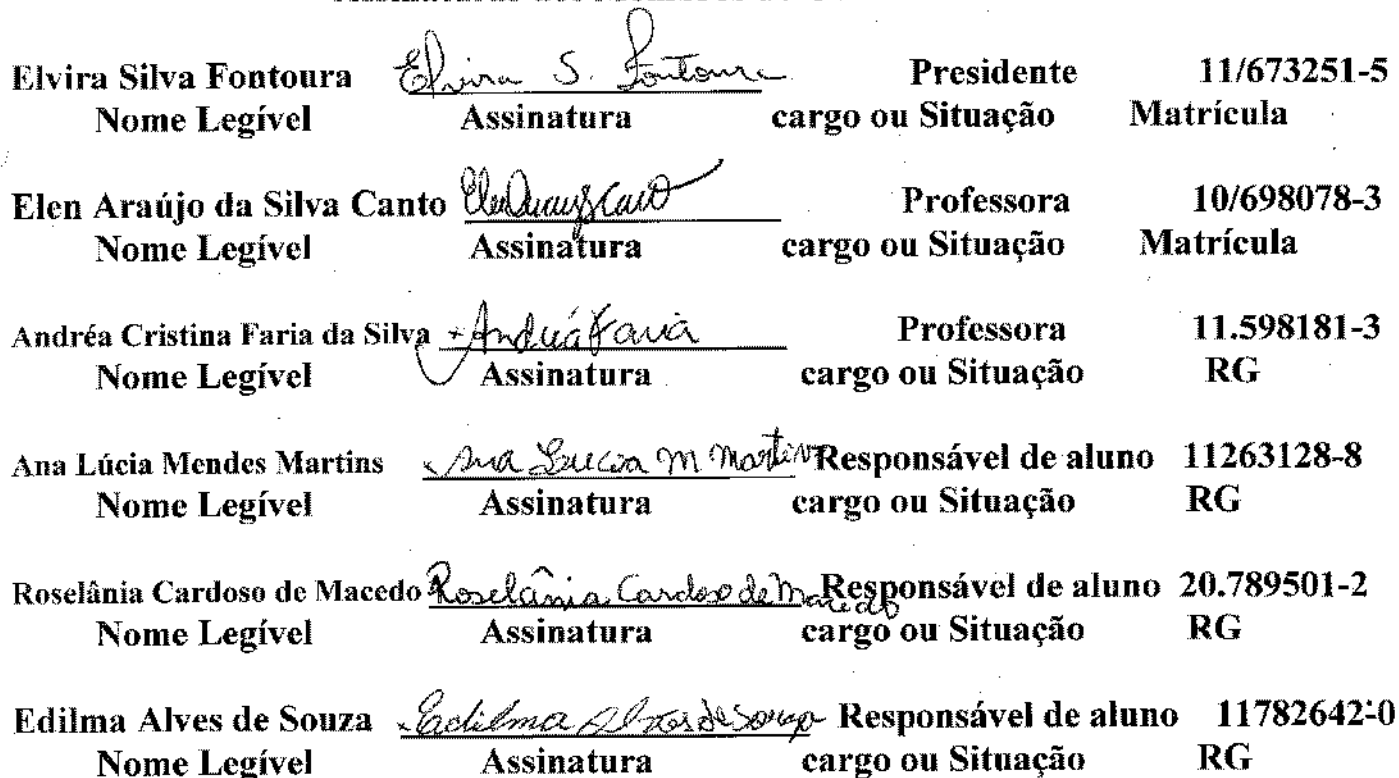 Elvira Silva Fontoura Elvira S. Fontoura Presidente 11/673251-5
Nome Legível Assinatura cargo ou Situação Matrícula
Elen Araújo da Silva Canto Professora 10/698078-3
Nome Legível Assinatura cargo ou Situação Matrícula
Andréa Cristina Faria da Silva Andréa Faria Professora 11.598181-3
Nome Legível Assinatura cargo ou Situação RG
Ana Lúcia Mendes Martins Ana Lucia M Martins Responsável de aluno 11263128-8
Nome Legível Assinatura cargo ou Situação RG
Roselânia Cardoso de Macedo Roselânia Cardoso de Macedo Responsável de aluno 20.789501-2
Nome Legível Assinatura cargo ou Situação RG
Edilma Alves de Souza Edilma Alves de Souza Responsável de aluno 11782642-0
Nome Legível Assinatura cargo ou Situação RG